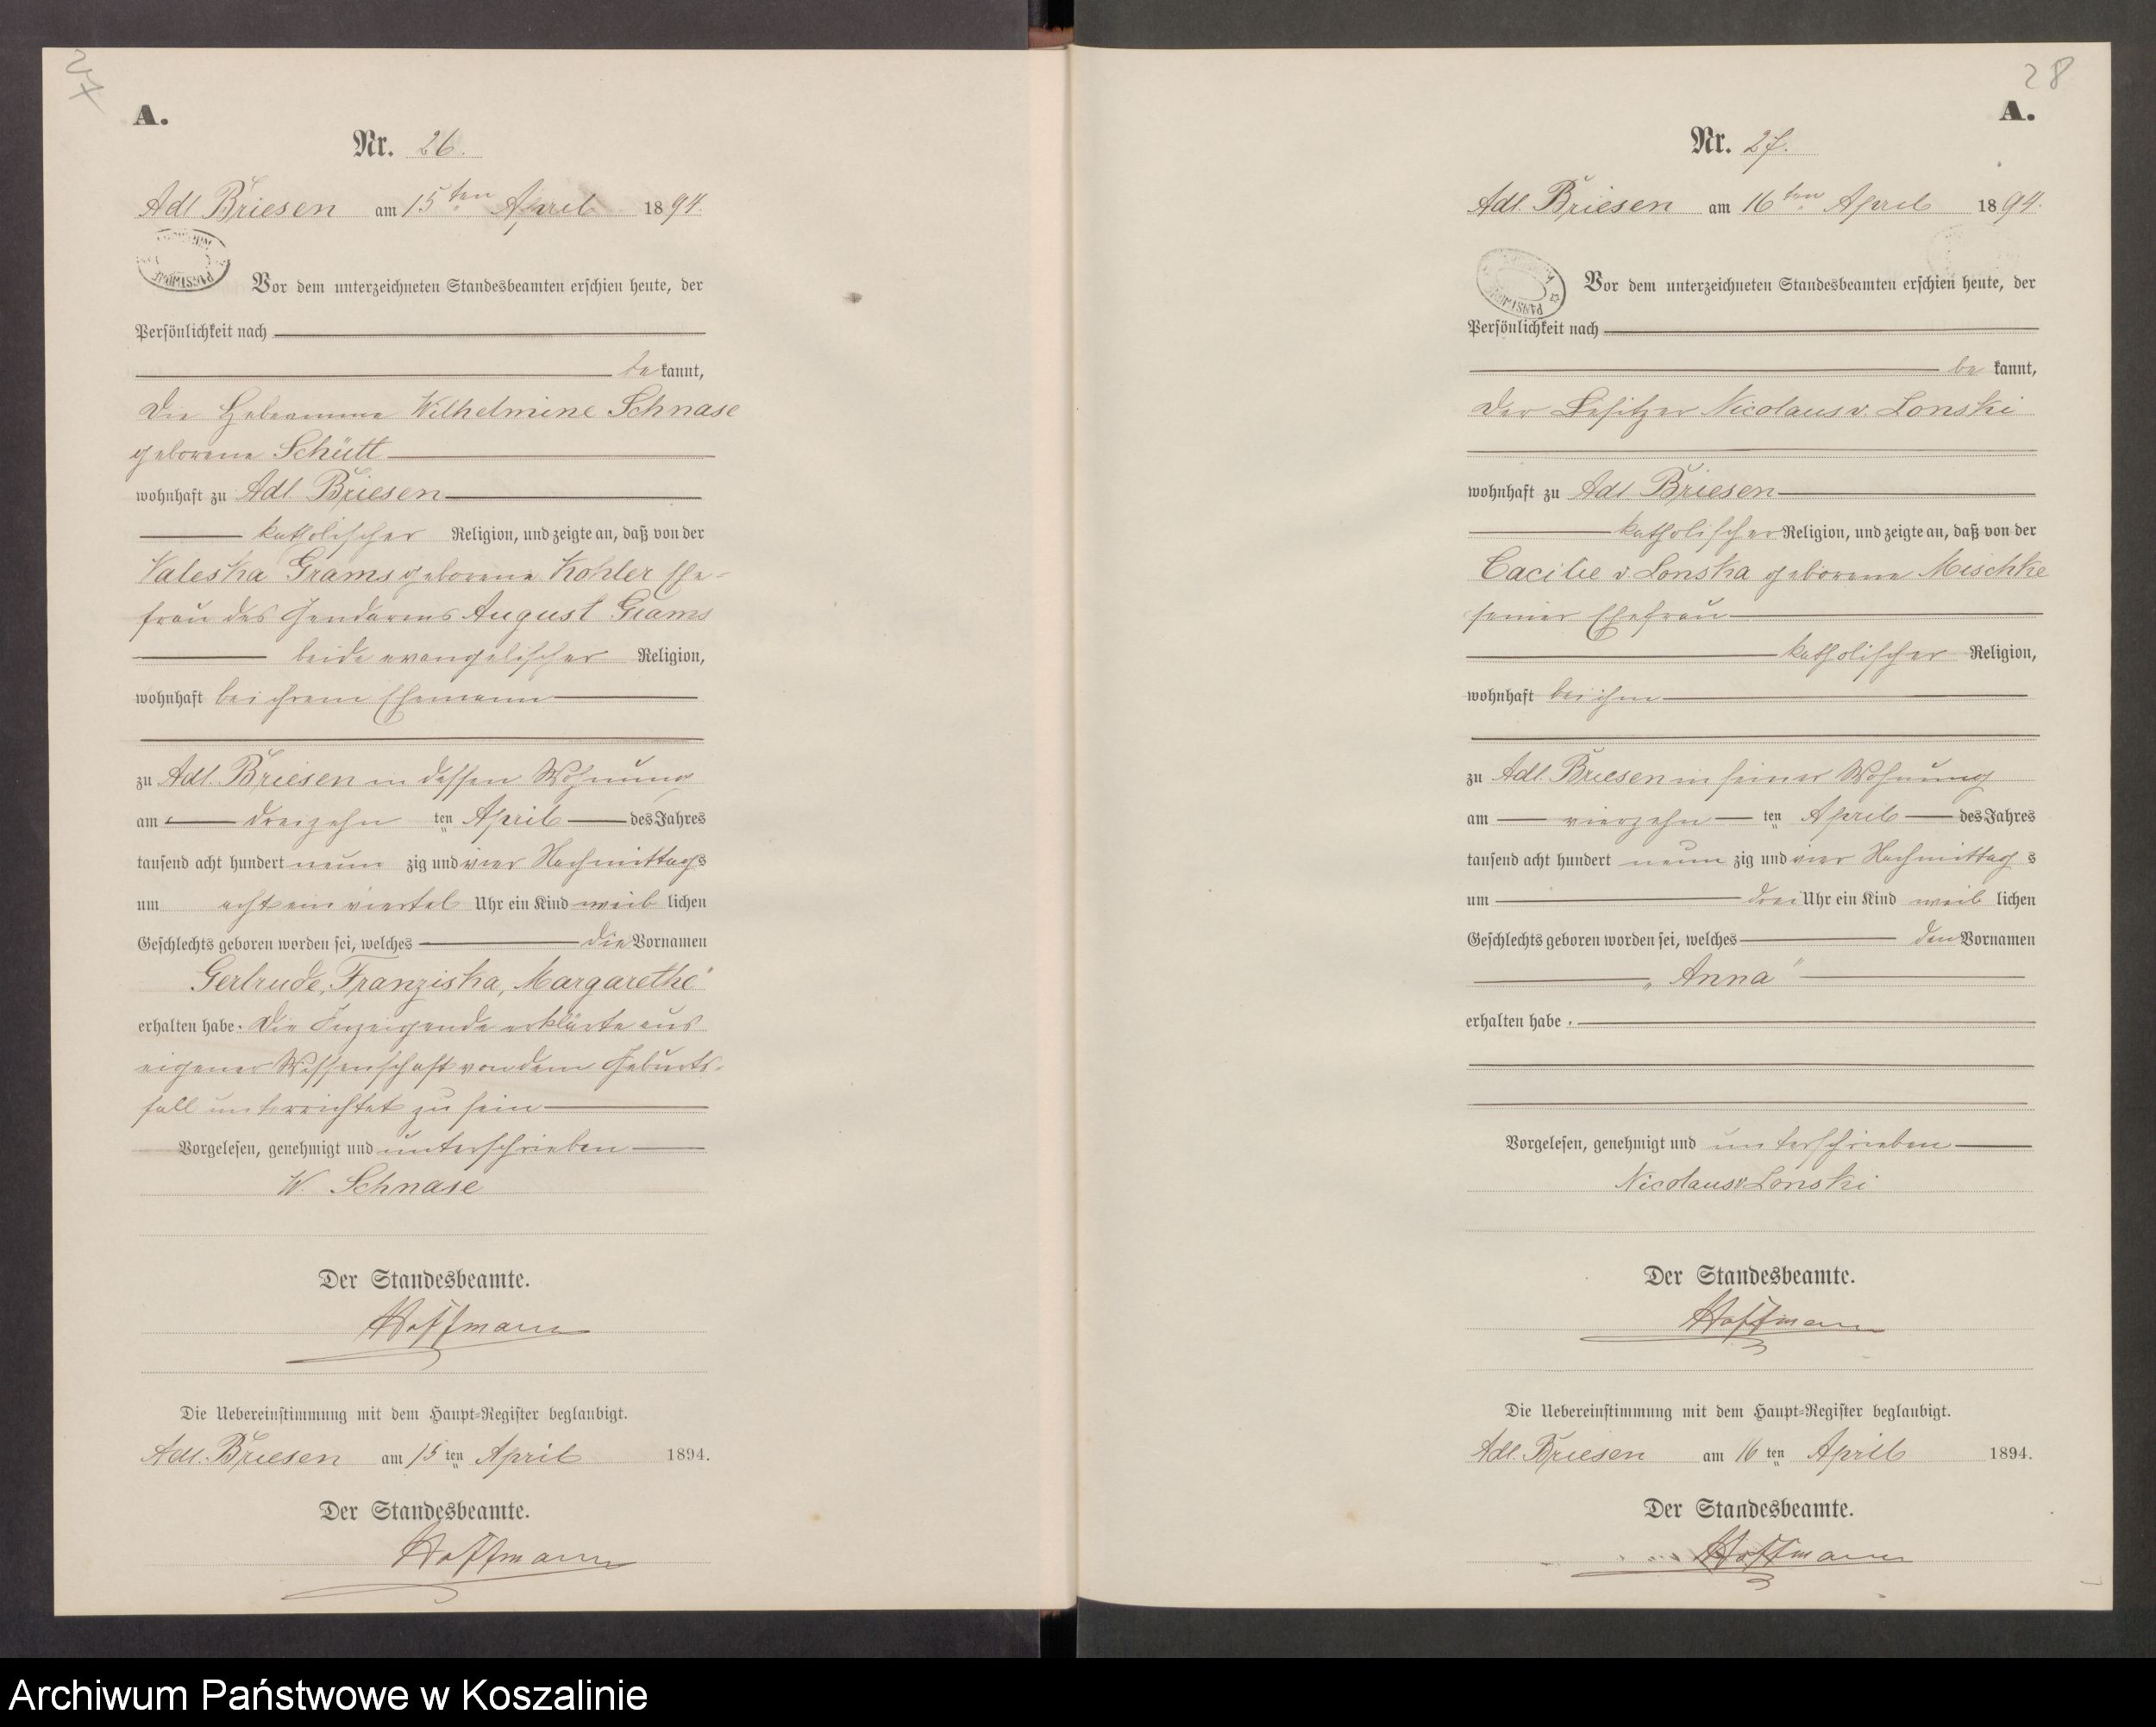 27
A.
Nr. 26.
Adl Briesen am 15ten April 1894.
Vor dem unterzeichneten Standesbeamten erschien heute, der
Persönlichkeit nach
be kannt,
die Hebeamme Wilhelmine Schnase
geborene Schütt
wohnhaft zu Adl. Briesen
katholischer Religion, und zeigte an, daß von der
Valeska Grams geborene Kohler Ehe-
frau des Gendarms August Grams
beide evangelischer Religion,
wohnhaft bei ihrem Ehemann
zu Adl. Briesen in dessen Wohnung
am dreizehn ten April des Jahres
tausend acht hundert neun zig und vier Nachmittags
um acht ein viertel Uhr ein Kind weib lichen
Geschlechts geboren worden sei, welches die Vornamen
Gertrude, Franziska, Margarethe"
erhalten habe. Die Anzeigende erklärte aus
eigener Wissenschaft von dem Geburts-
fall unterrichtet zu sein
Vorgelesen, genehmigt und unterschrieben
W. Schnase
Der Standesbeamte.
Hoffmann
Die Uebereinstimmung mit dem Haupt-Register beglaubigt.
Adl. Briesen am 15 ten April 1894.
Der Standesbeamte.
Hoffmann
28
A.
Nr. 27.
Adl. Briesen am 16ten April 1894.
Vor dem unterzeichneten Standesbeamten erschien heute, der
Persönlichkeit nach
be kannt,
der Besitzer Nicolaus v. Lonski
wohnhaft zu Adl Briesen
katholischer Religion, und zeigte an, daß von der
Cacilie v. Lonska geborene Mischke
seiner Ehefrau
katholischer Religion,
wohnhaft bei ihm
zu Adl. Briesen in seiner Wohnung
am vierzehn ten April des Jahres
tausend acht hundert neun zig und vier Nachmittag s
um drei Uhr ein Kind weib lichen
Geschlechts geboren worden sei, welches den Vornamen
„Anna"
erhalten habe.
Vorgelesen, genehmigt und unterschrieben
Nicolaus v Lonski
Der Standesbeamte.
Hoffmann
Die Uebereinstimmung mit dem Haupt-Register beglaubigt.
Adl. Briesen am 16 ten April 1894.
Der Standesbeamte.
Hoffmann
Archiwum Państwowe w Koszalinie